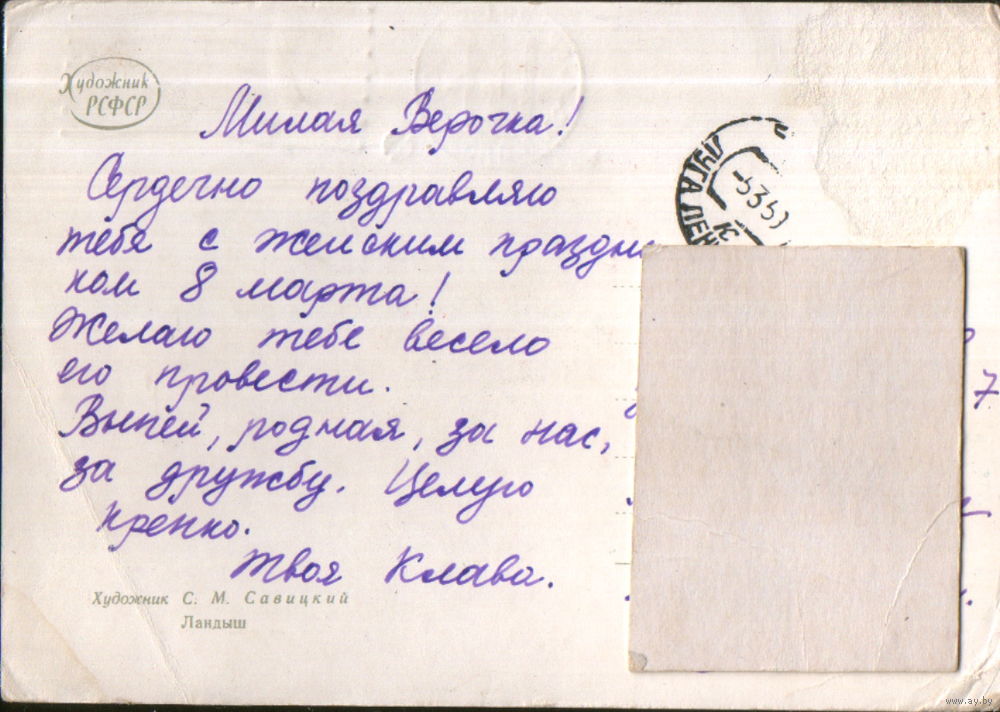 Художник
РСФСР
Милая Верочка!
Сердечно поздравляю
тебя с женским праздни
ком 8 марта!
Желаю тебе весело
его провести.
Выпей, родная, за нас,
за дружбу. Целую
крепко.
Твоя Клава.
Художник С. М. Савицкий
Ландыш
7
www.ay.by